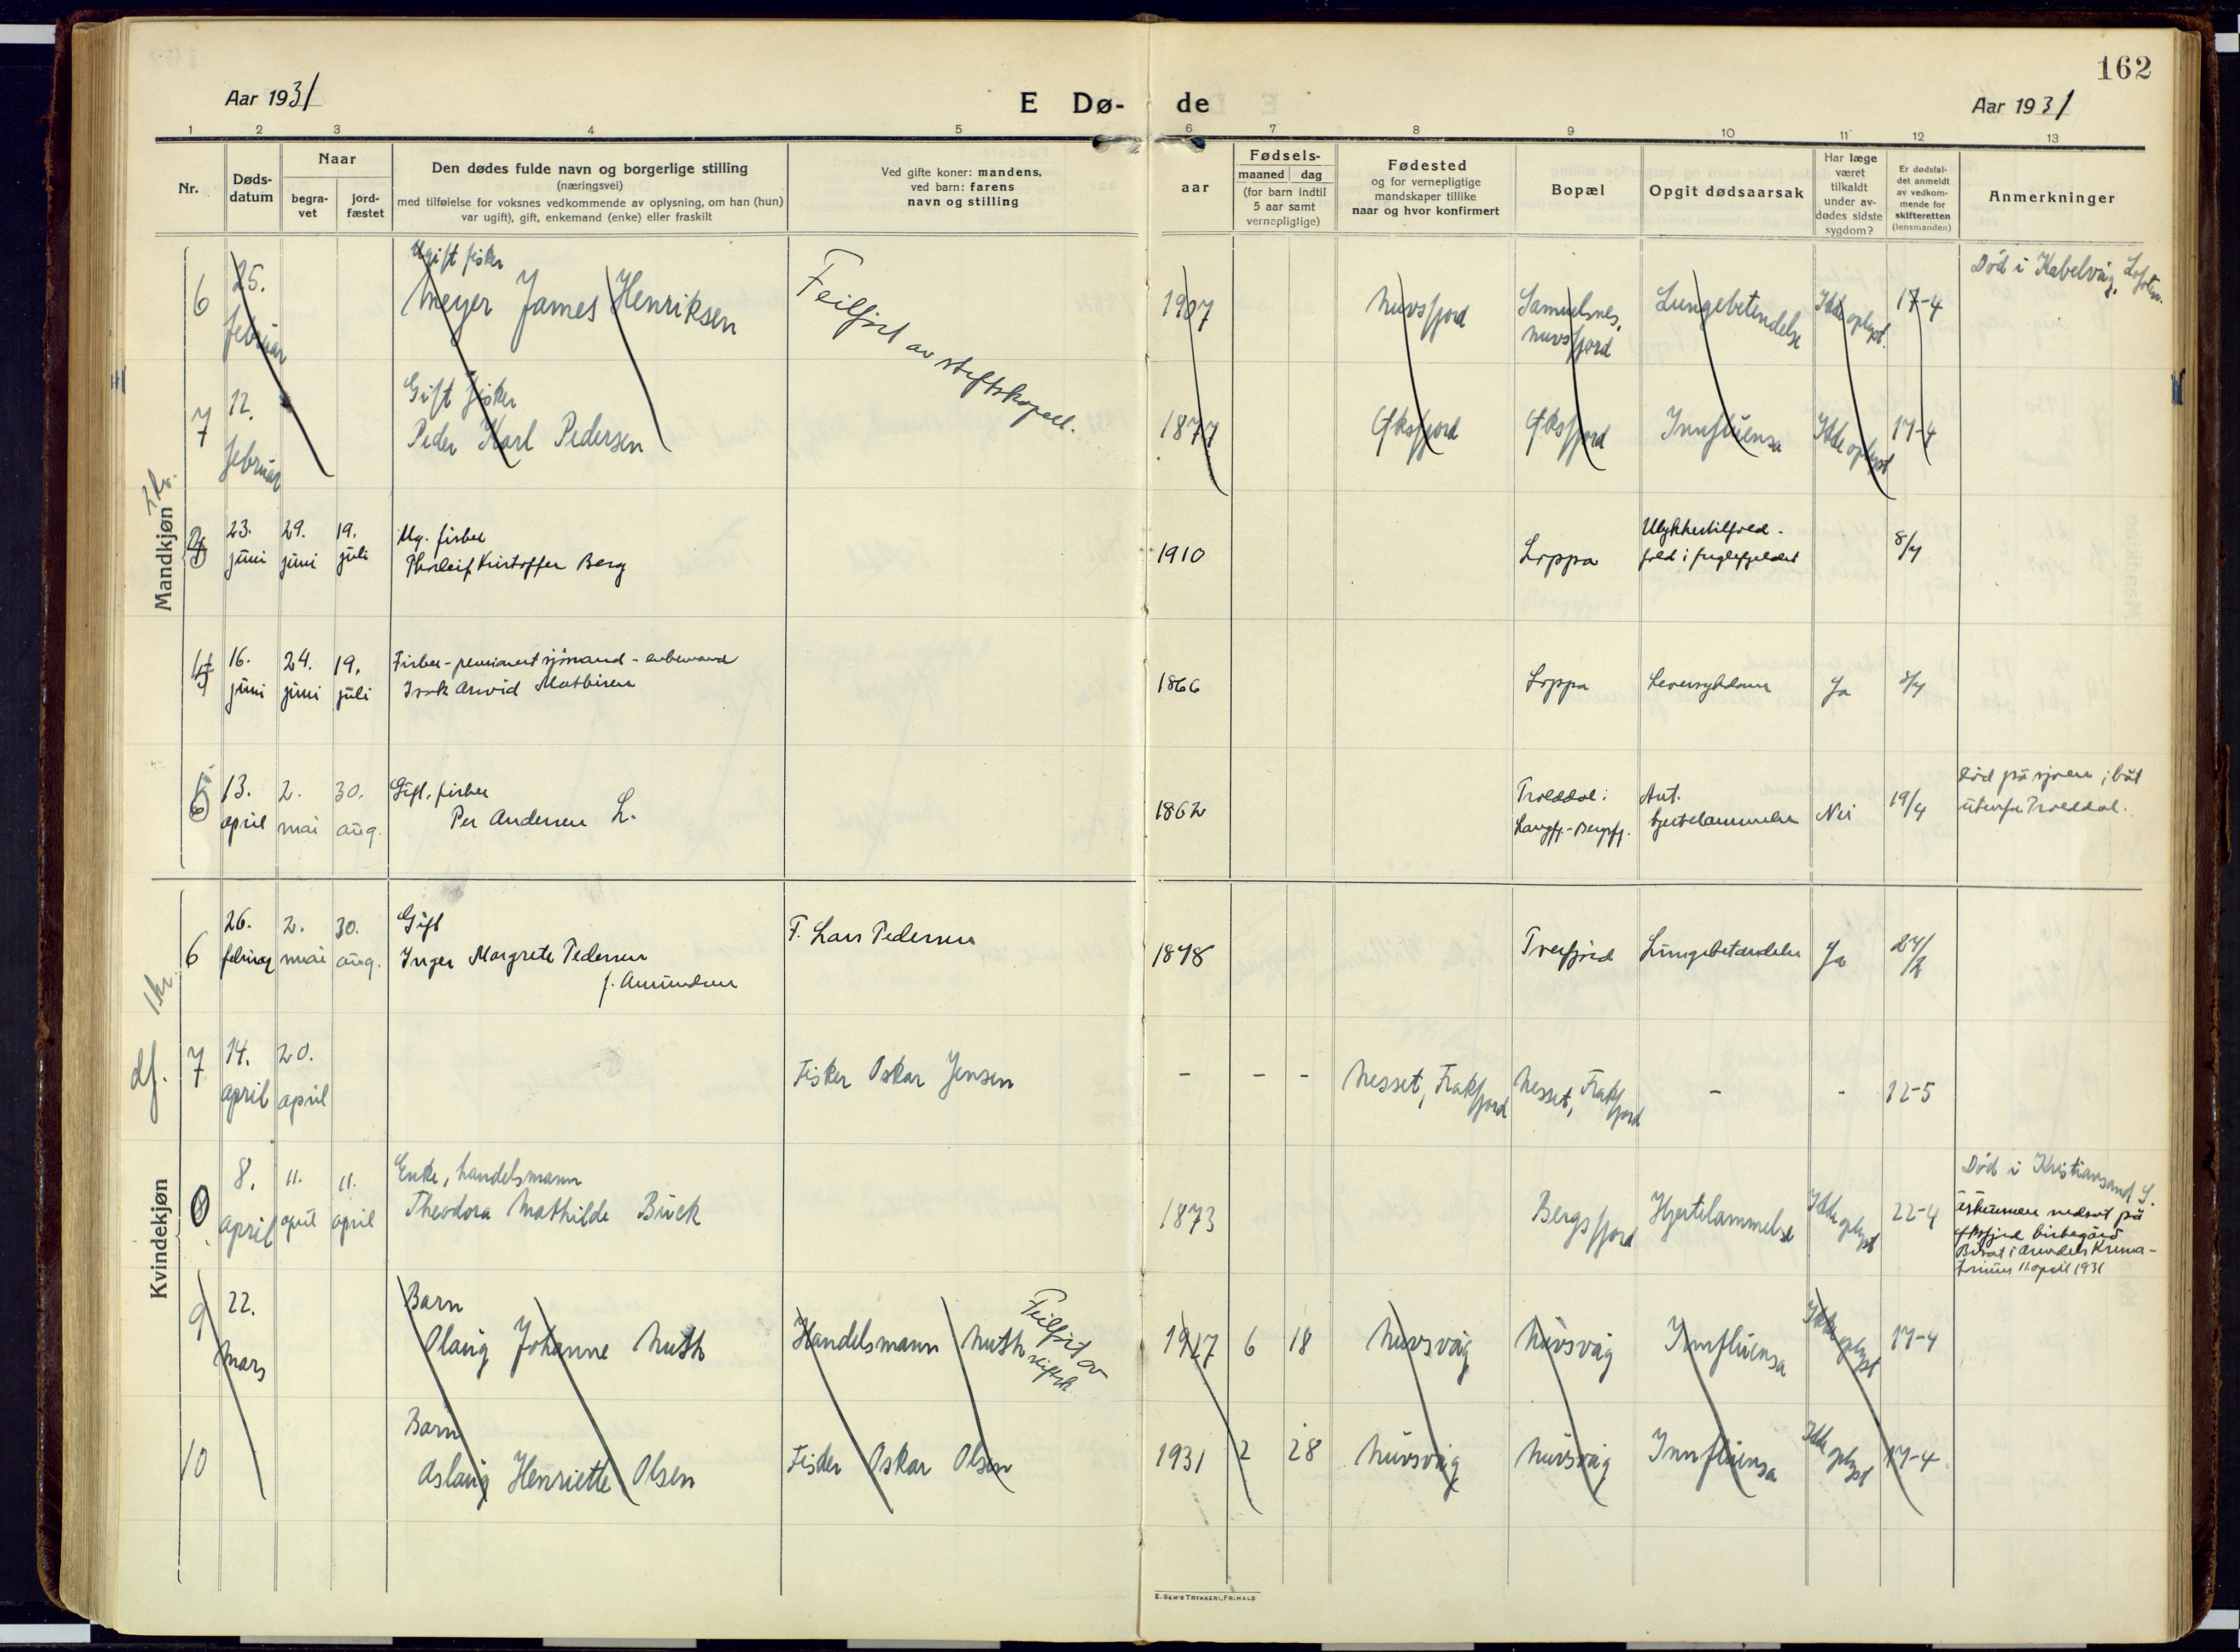 162
Aar 1931
E Dø-
de
Aar 1931
1 2 3 4 5 6 7 8 9 10 11 12 13
Nr.
Døds-
datum
Naar
begra-
vet
jord-
fæstet
Den dødes fulde navn og borgerlige stilling
(næringsvei)
med tilføielse for voksnes vedkommende av oplysning, om han (hun)
var ugift), gift, enkemand (enke) eller fraskilt
Ved gifte koner: mandens,
ved barn: farens
navn og stilling
aar
Fødsels-
maaned dag
(for barn indtil
5 aar samt
vernepligtige)
Fødested
og for vernepligtige
mandskaper tillike
naar og hvor konfirmert
Bopæl
Opgit dødsaarsak
Har læge
været
tilkaldt
under av-
dødes sidste
sygdom?
Er dødsfal-
det anmeldt
av vedkom-
mende for
skifteretten
(lensmanden)
Anmerkninger
Mandkjøn
6
25.
februar
Ugift fisker
Meyer James Henriksen
Feilført av stiftskapell.
1907
Nuvsfjord
Samuelsnes,
Nuvsfjord
Lungebetendelse
Ikke oplyst.
17-4
Død i Kabelvåg, Lofoten.
7
12.
februar
Gift fisker
Peder Karl Pedersen
1877
Øksfjord
Øksfjord
Innflüensa
Ikke oplyst
17-4
23.
juni
29.
juni
19.
juli
Ug. fisker
Thorleif Kristoffer Berg
1910
Loppa
Ulykkestilfeld -
fald i fuglefjeldet
8/7
16.
juni
24.
juni
19.
juli
Fisker - pensionert sjömand - enkemand
Isak Arvid Mathisen
1866
Loppa
Leversykdom
Ja
8/7
13.
april
2.
mai
30.
aug.
Gift, fisker
Per Andersen L.
1862
Trolddal i
Langfj. - Bergsfj.
Ant.
hjertelammelse
Nei
19/4
Död på sjöen i båt
utenfor Trolddal.
Kvindekjøn
6
26.
februar
2.
mai
30.
aug.
Gift
Inger Margrete Pedersen
f. Amundsen
F. Lars Pedersen
1878
Tverfjord
Lungebetendelse
Ja
27/2
df.
7
14.
april
20.
april
Fisker Oskar Jensen
- - -
Nesset, Frakfjord
Nesset, Frakfjord
-
-
12-5
8
8.
april
11.
april
11.
april
Enke, handelsmann
Theodora Mathilde Buck
1873
Bergsfjord
Hjertelammelse
Ikke oplyst
22-4
Död i Kristiansand S.
askeurnen nedsat på
Øksfjord kirkegård
Bisat i Arendals Krema-
torium 11. april 1931
9
22.
Mars
Barn
Olaug Johanne Muth
Handelsmann Muth
Feilført av
stiftsk
1927 6 18
Nuvsvåg
Nuvsvåg
Innflüensa
Ikke oplyst
17-4
10
Barn
Aslaug Henriette Olsen
Fisker Oskar Olsen
1931 2 28
Nuvsvåg
Nuvsvåg
Innflüensa
Ikke oplyst
17-4
E. SEM'S TRYKKERI, FR.HALD